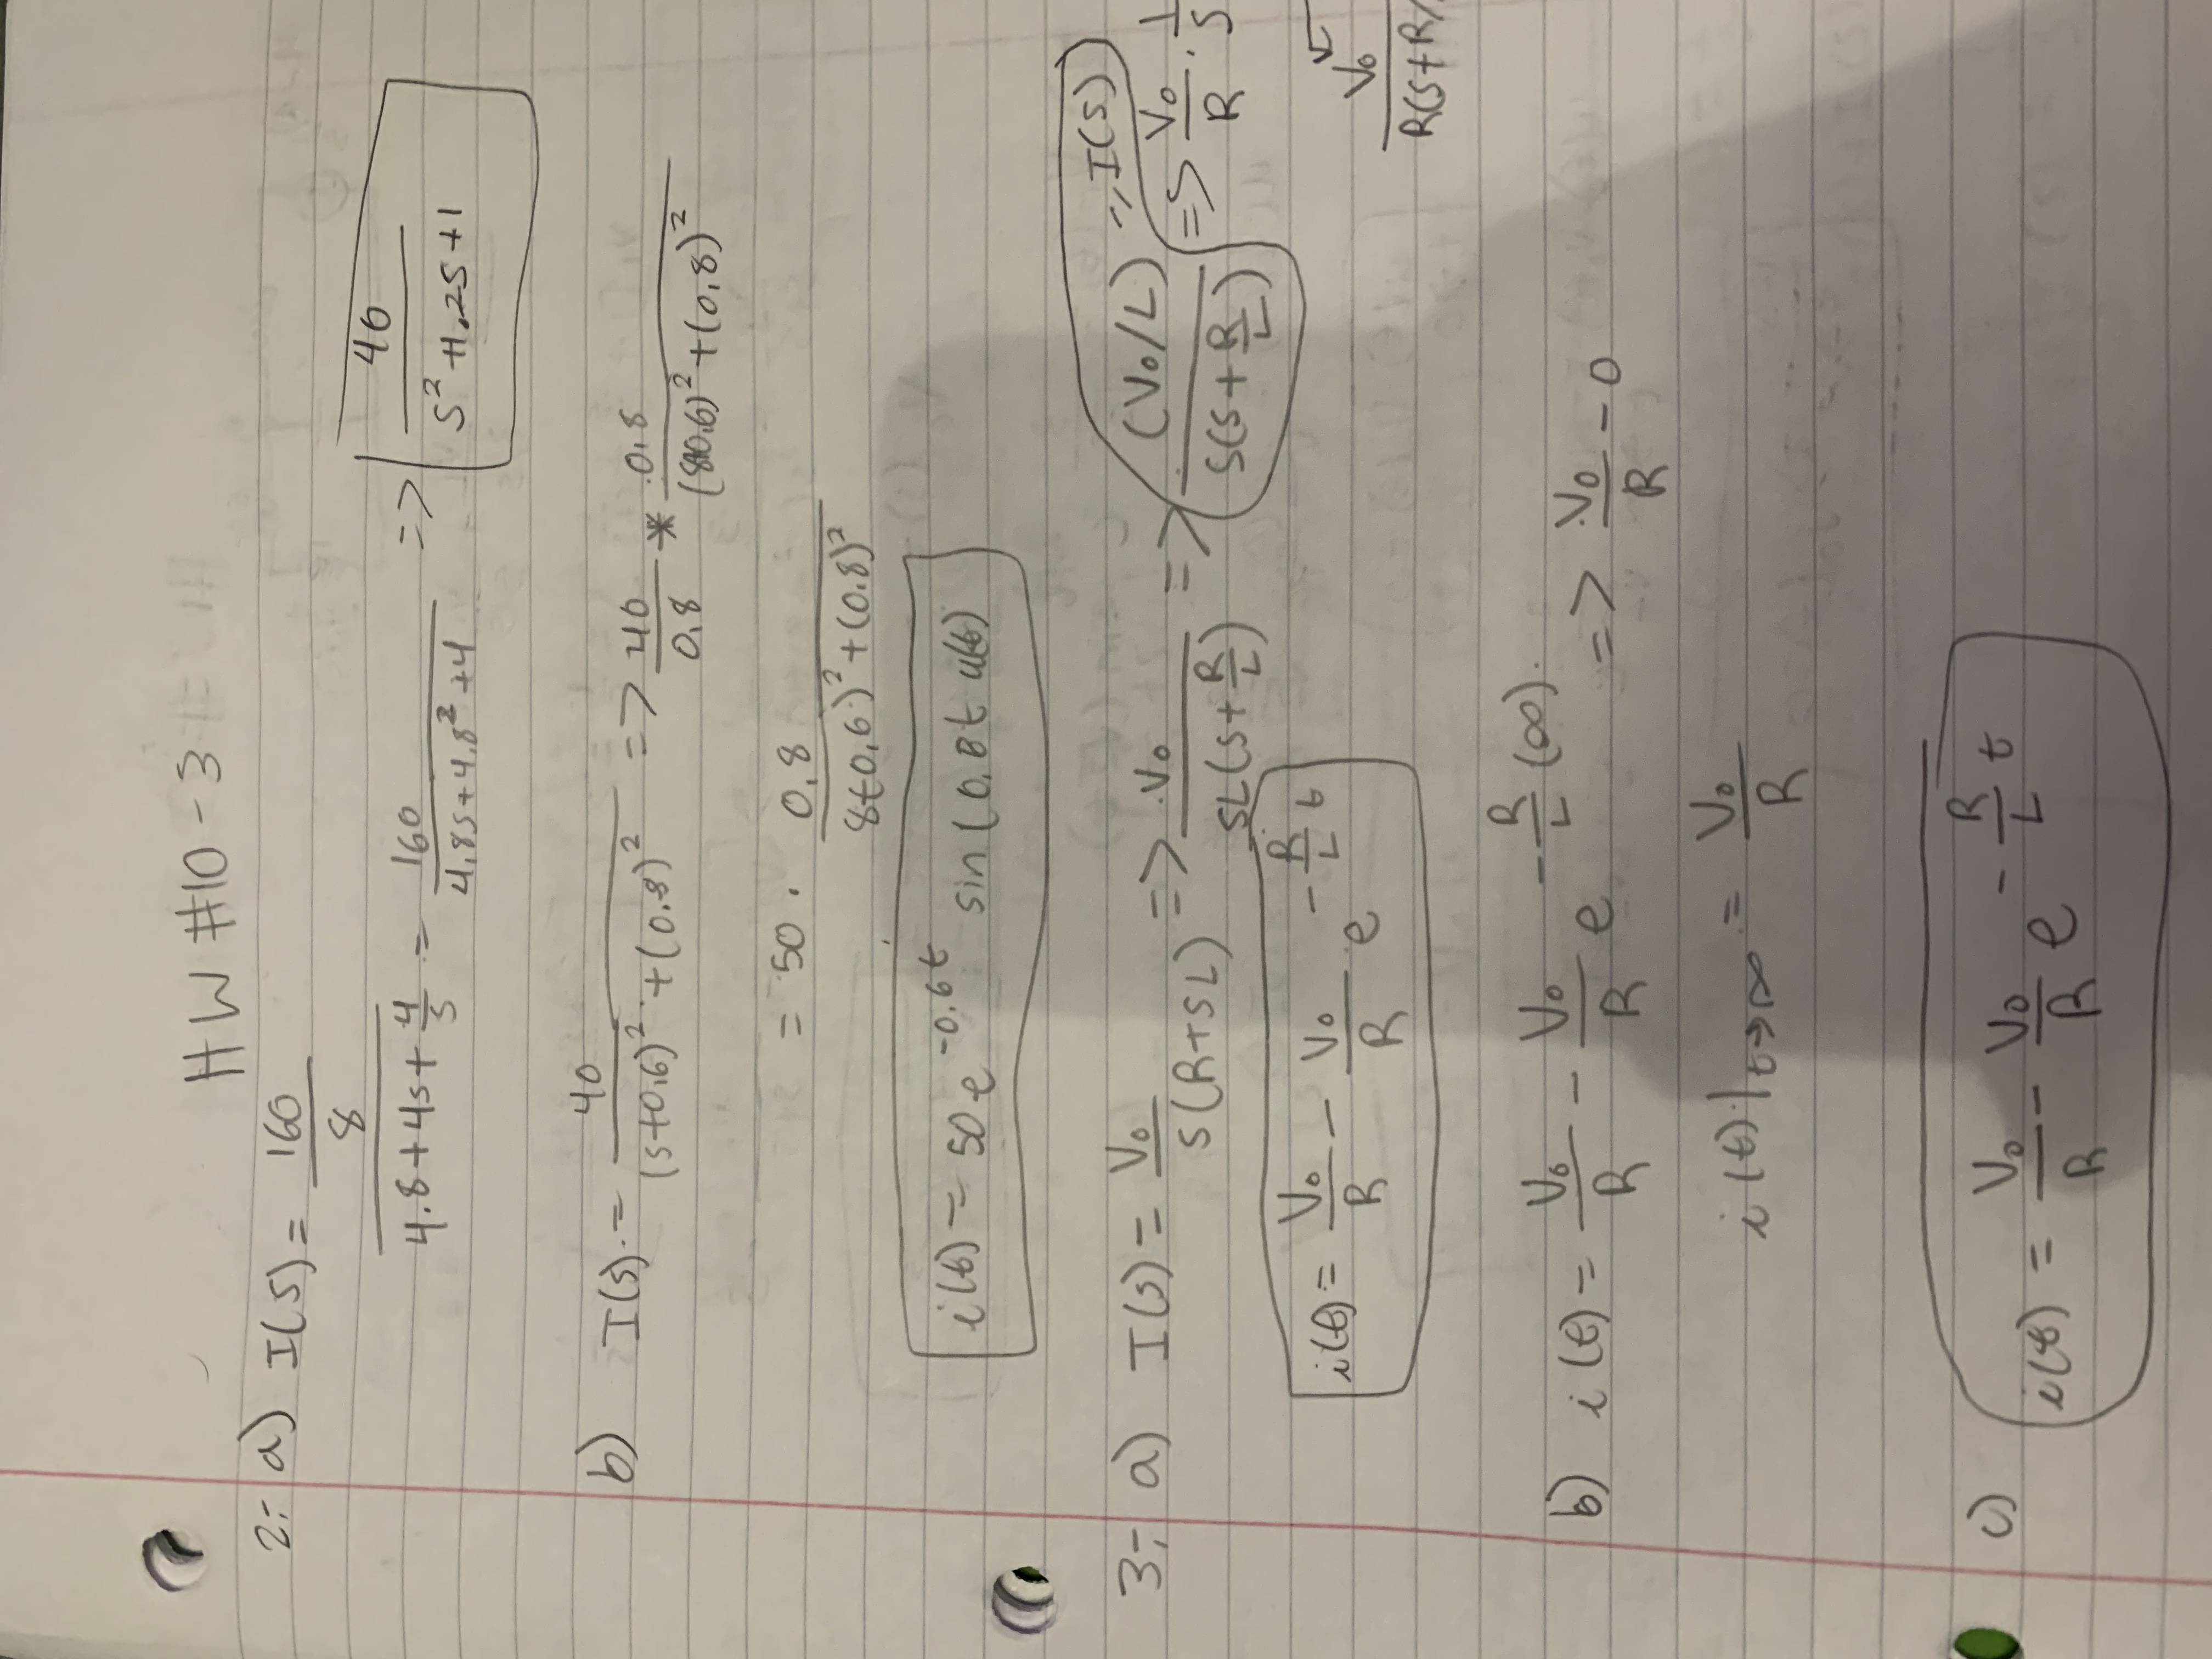 HW #10-3
2- a) I(S) = 160 / 8 / 4.8+4s+4/s = 160 / 4.8s+4.8² +4 => 40 / S² +1.2S+1
b) I(s) = 40 / (s+0.6)² + (0.8)² => 40 / 0.8 * 0.8 / (s+0.6)² + (0.8)²
= 50 · 0.8 / 8+0.6)² + (0.8)²
i(t) = 50 e^-0.6t sin (0.8t u(t)
3- a) I(s) = V₀ / S(R+SL) => V₀ / SL(S+R/L) => (V₀/L) / S(S+R/L) = I(S) => V₀/R · 1/S
i(t) = V₀/R - V₀/R e^-R/L t
V₀ / R(S+R/
b) i(t) = V₀/R - V₀/R e^-R/L (∞) => V₀/R - 0
i(t)|t→∞ = V₀/R
c) i(t) = V₀/R - V₀/R e^-R/L t